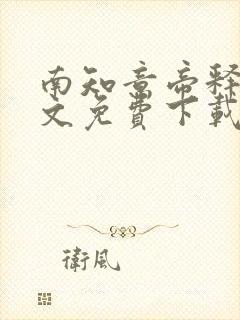 南知意帝释
文免费下载
衛風